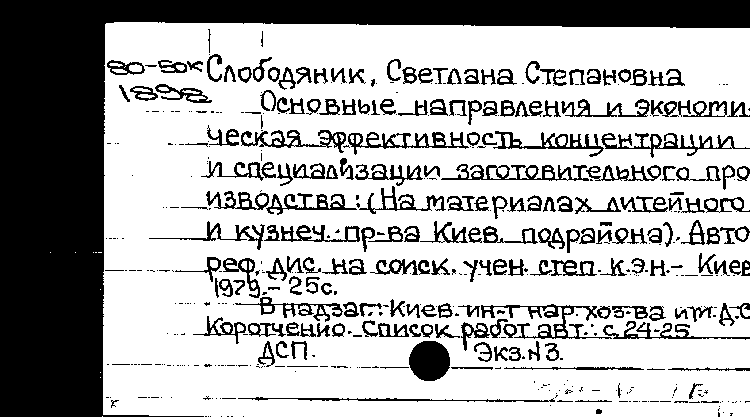 80-50к Слободяник, Светлана Степановна
1898 Основные направления и экономи-
ческая эффективность концентрации
и специализации заготовительного про
изводства: (На материалах литейного
и кузнеч. пр-ва Киев. подрайона). Авто
реф. дис. на соиск. учен. степ. к.э.н.- Киев
1979.- 25с.
В надзаг: Киев. ин-т нар. хоз-ва им. Д.С
Коротченко. Список работ авт.: с. 24-25
ДСП. Экз.№3.